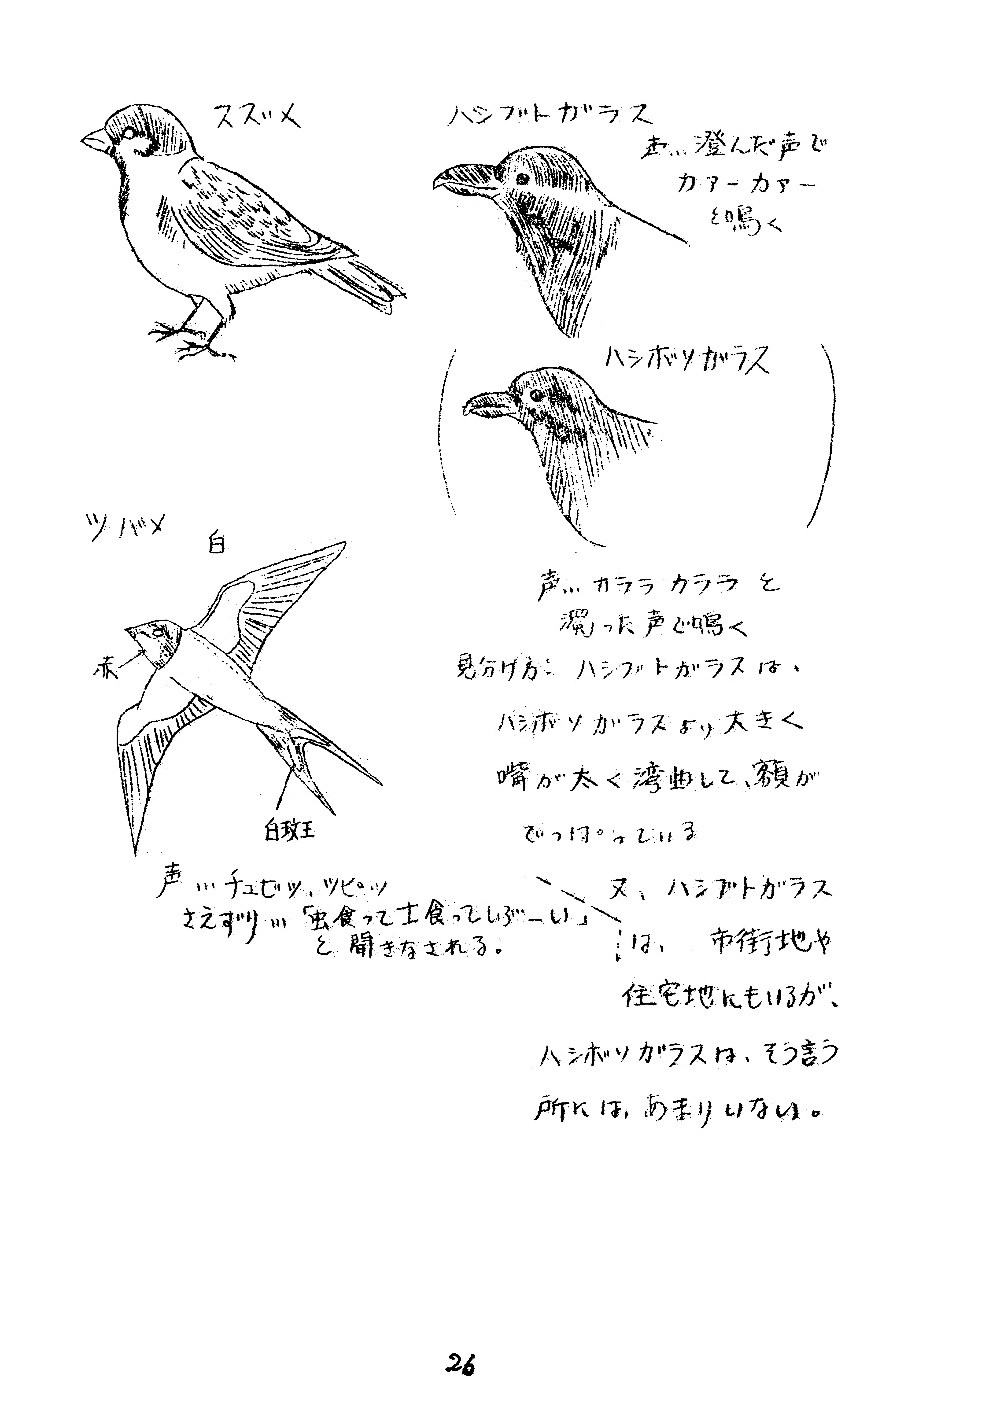 スズメ
ハシブトガラス
声…澄んだ声で
カァーカァー
と鳴く
ハシボソガラス
ツバメ
白
赤
白斑
声…チュビッ、ツピーッ
さえずり…「虫食って土食ってしぶーい」
と聞きなされる。
声…カララ カララ と
濁った声で鳴く
見分け方: ハシブトガラスは、
ハシボソガラスより大きく
嘴が太く湾曲して、額が
でっぱっている
又、ハシブトガラス
は、市街地や
住宅地にもいるが、
ハシボソガラスは、そう言う
所には、あまりいない。
26